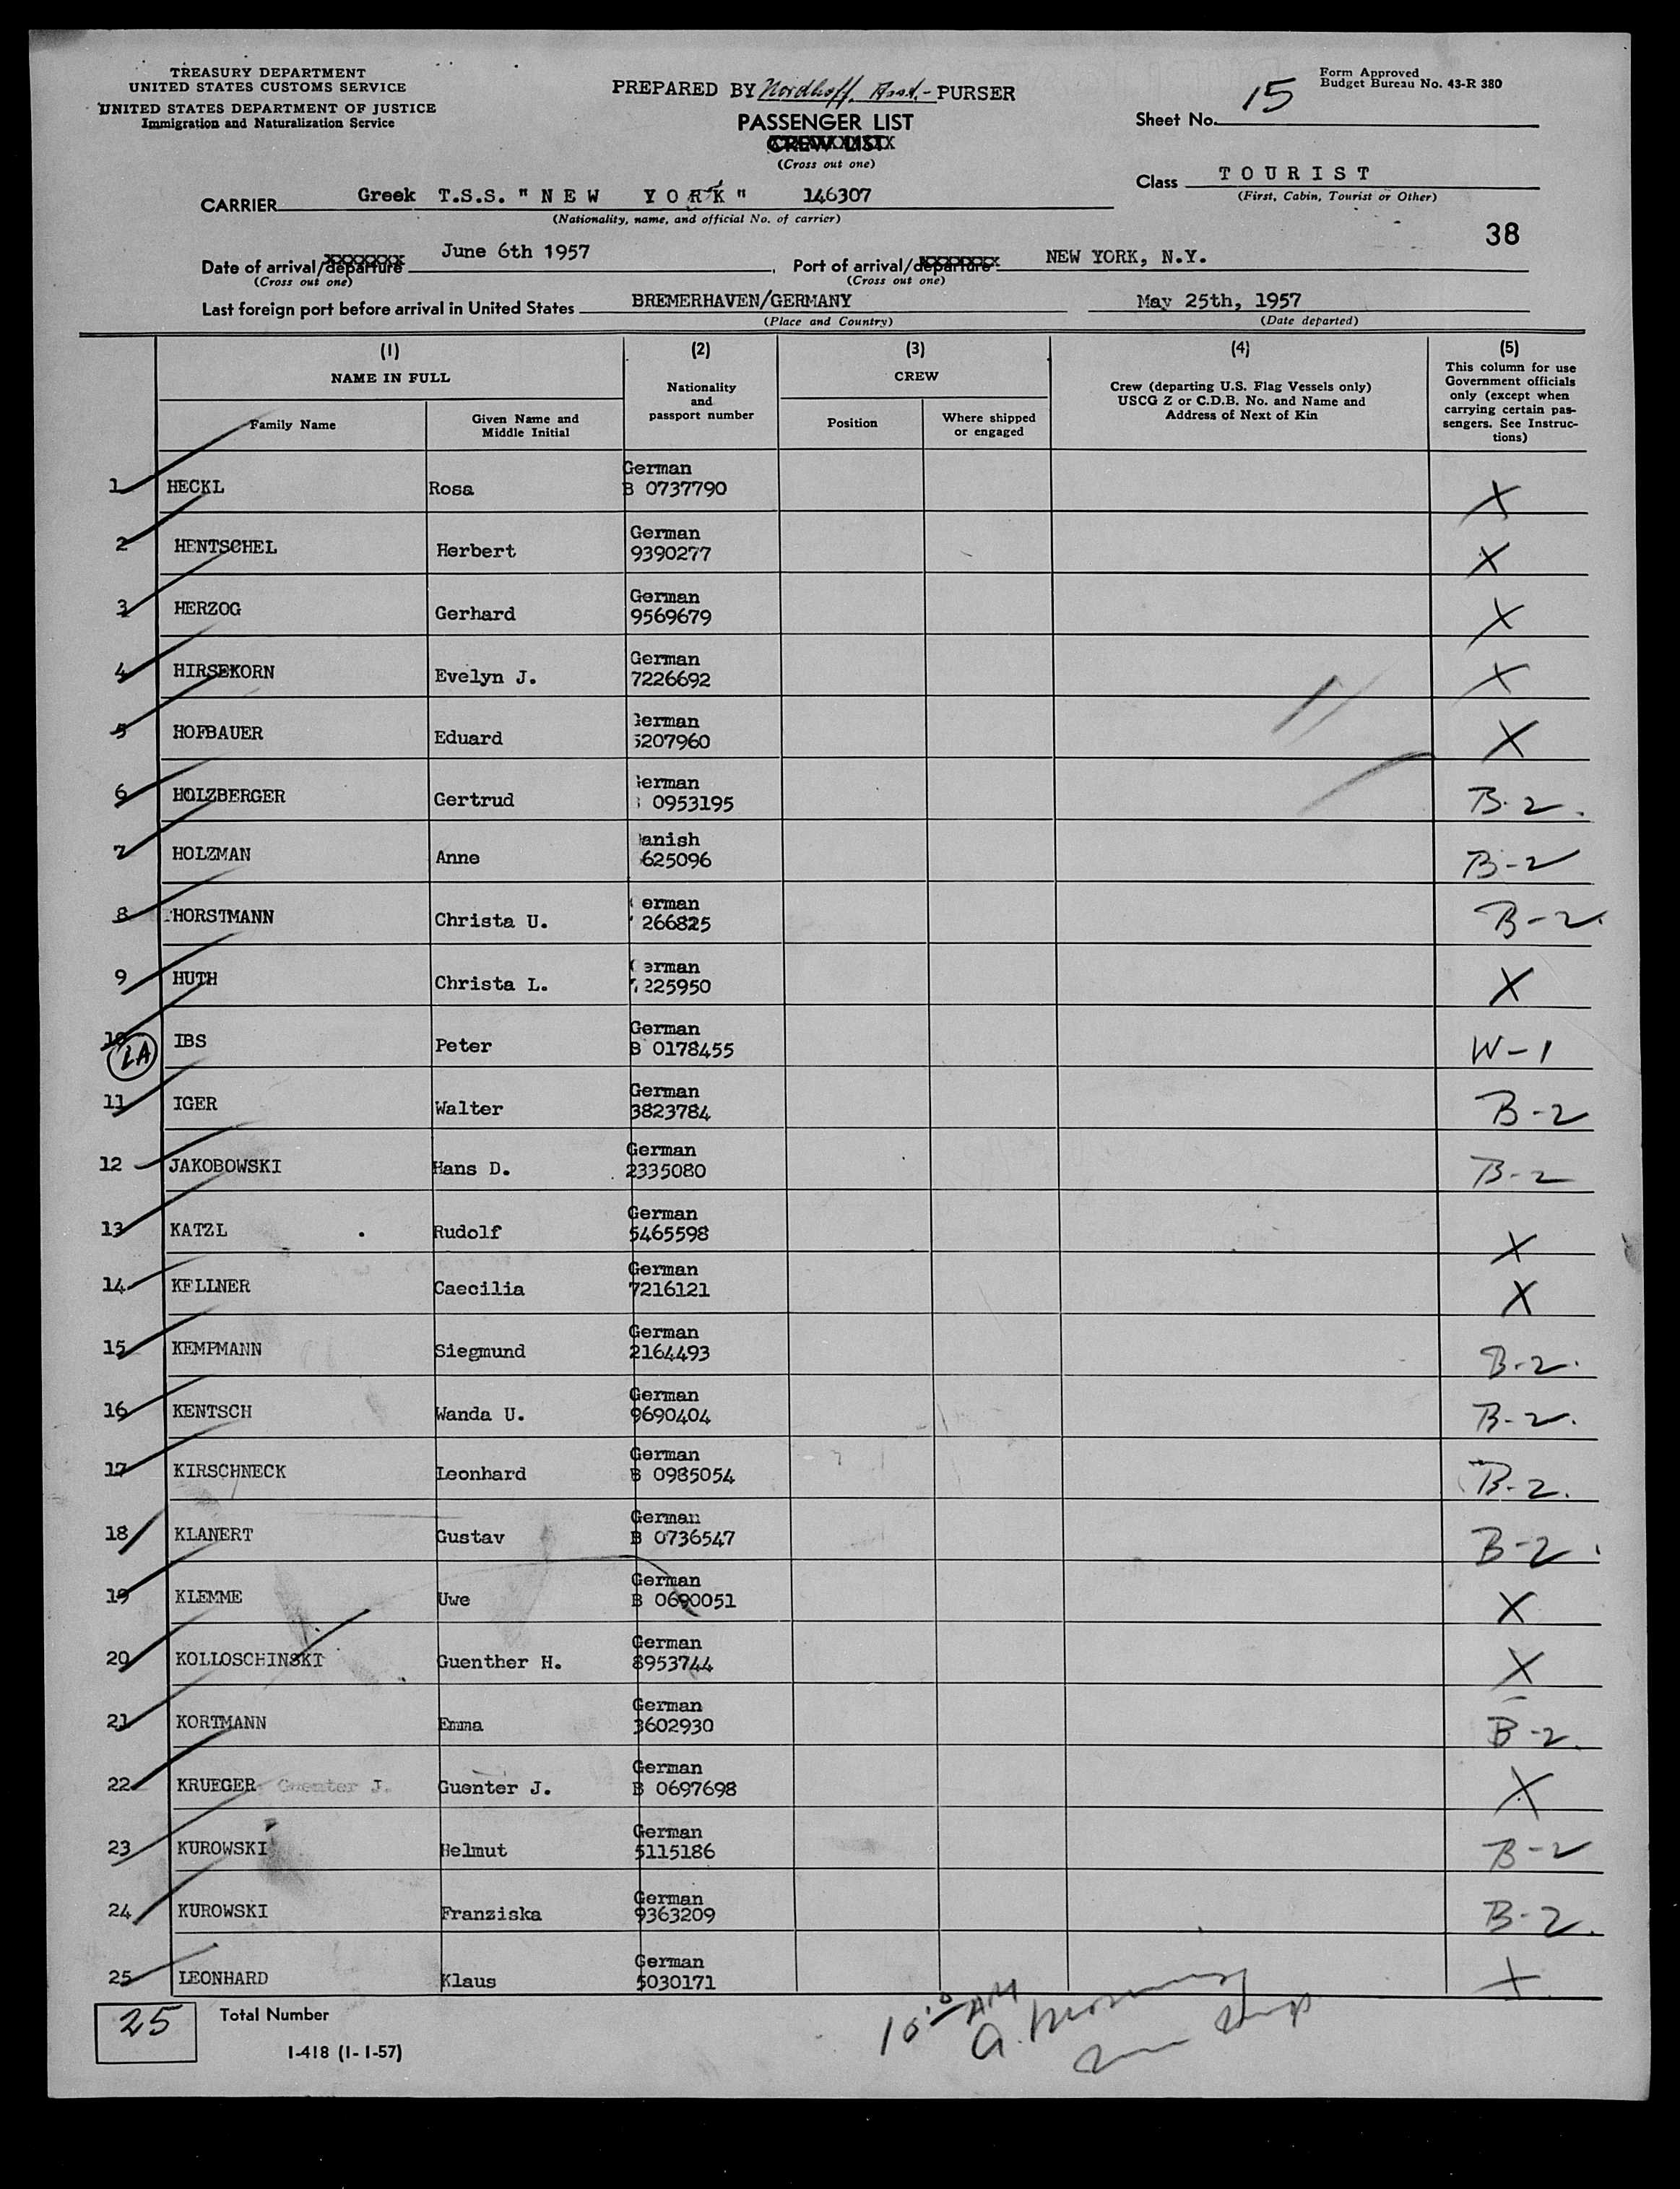 TREASURY DEPARTMENT
UNITED STATES CUSTOMS SERVICE
UNITED STATES DEPARTMENT OF JUSTICE
Immigration and Naturalization Service
PREPARED BY Nordhoff, Asst.- PURSER
PASSENGER LIST
CREW LIST
(Cross out one)
Form Approved
Budget Bureau No. 43-R 380
Sheet No. 15
Class TOURIST
(First, Cabin, Tourist or Other)
CARRIER Greek T.S.S. "NEW YORK" 146307
(Nationality, name, and official No. of carrier)
38
Date of arrival/departure June 6th 1957, Port of arrival/departure NEW YORK, N.Y.
(Cross out one) (Cross out one)
Last foreign port before arrival in United States BREMERHAVEN/GERMANY May 25th, 1957
(Place and Country) (Date departed)
(1) NAME IN FULL
Family Name
Given Name and Middle Initial
(2) Nationality and passport number
(3) CREW
Position
Where shipped or engaged
(4) Crew (departing U.S. Flag Vessels only) USCG Z or C.D.B. No. and Name and Address of Next of Kin
(5) This column for use Government officials only (except when carrying certain passengers. See Instructions)
1 HECKL Rosa German B 0737790 X
2 HENTSCHEL Herbert German 9390277 X
3 HERZOG Gerhard German 9569679 X
4 HIRSEKORN Evelyn J. German 7226692 X
5 HOFBAUER Eduard German 5207960 X
6 HOLZBERGER Gertrud German 0953195 B-2.
7 HOLZMAN Anne anish 625096 B-2
8 HORSTMANN Christa U. erman 266825 B-2.
9 HUTH Christa L. German 7225950 X
10 LA IBS Peter German B 0178455 W-1
11 IGER Walter German 3823784 B-2
12 JAKOBOWSKI Hans D. German 2335080 B-2
13 KATZL Rudolf German 5465598 X
14 KELLNER Caecilia German 7216121 X
15 KEMPMANN Siegmund German 2164493 B-2.
16 KENTSCH Wanda U. German 9690404 B-2.
17 KIRSCHNECK Leonhard German B 0985054 B-2.
18 KLANERT Gustav German B 0736547 B-2.
19 KLEMME Uwe German B 0690051 X
20 KOLLOSCHINSKI Guenther H. German 8953744 X
21 KORTMANN Emma German 3602930 B-2.
22 KRUEGER Guenter J. Guenter J. German B 0697698 X
23 KUROWSKI Helmut German 5115186 B-2
24 KUROWSKI Franziska German 9363209 B-2.
25 LEONHARD Klaus German 5030171 X
25 Total Number
I-418 (1-1-57)